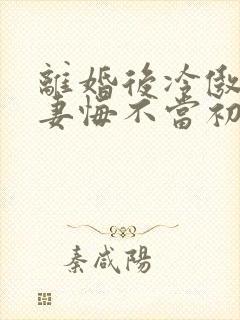 離婚後冷傲
妻悔不當初
秦咸陽